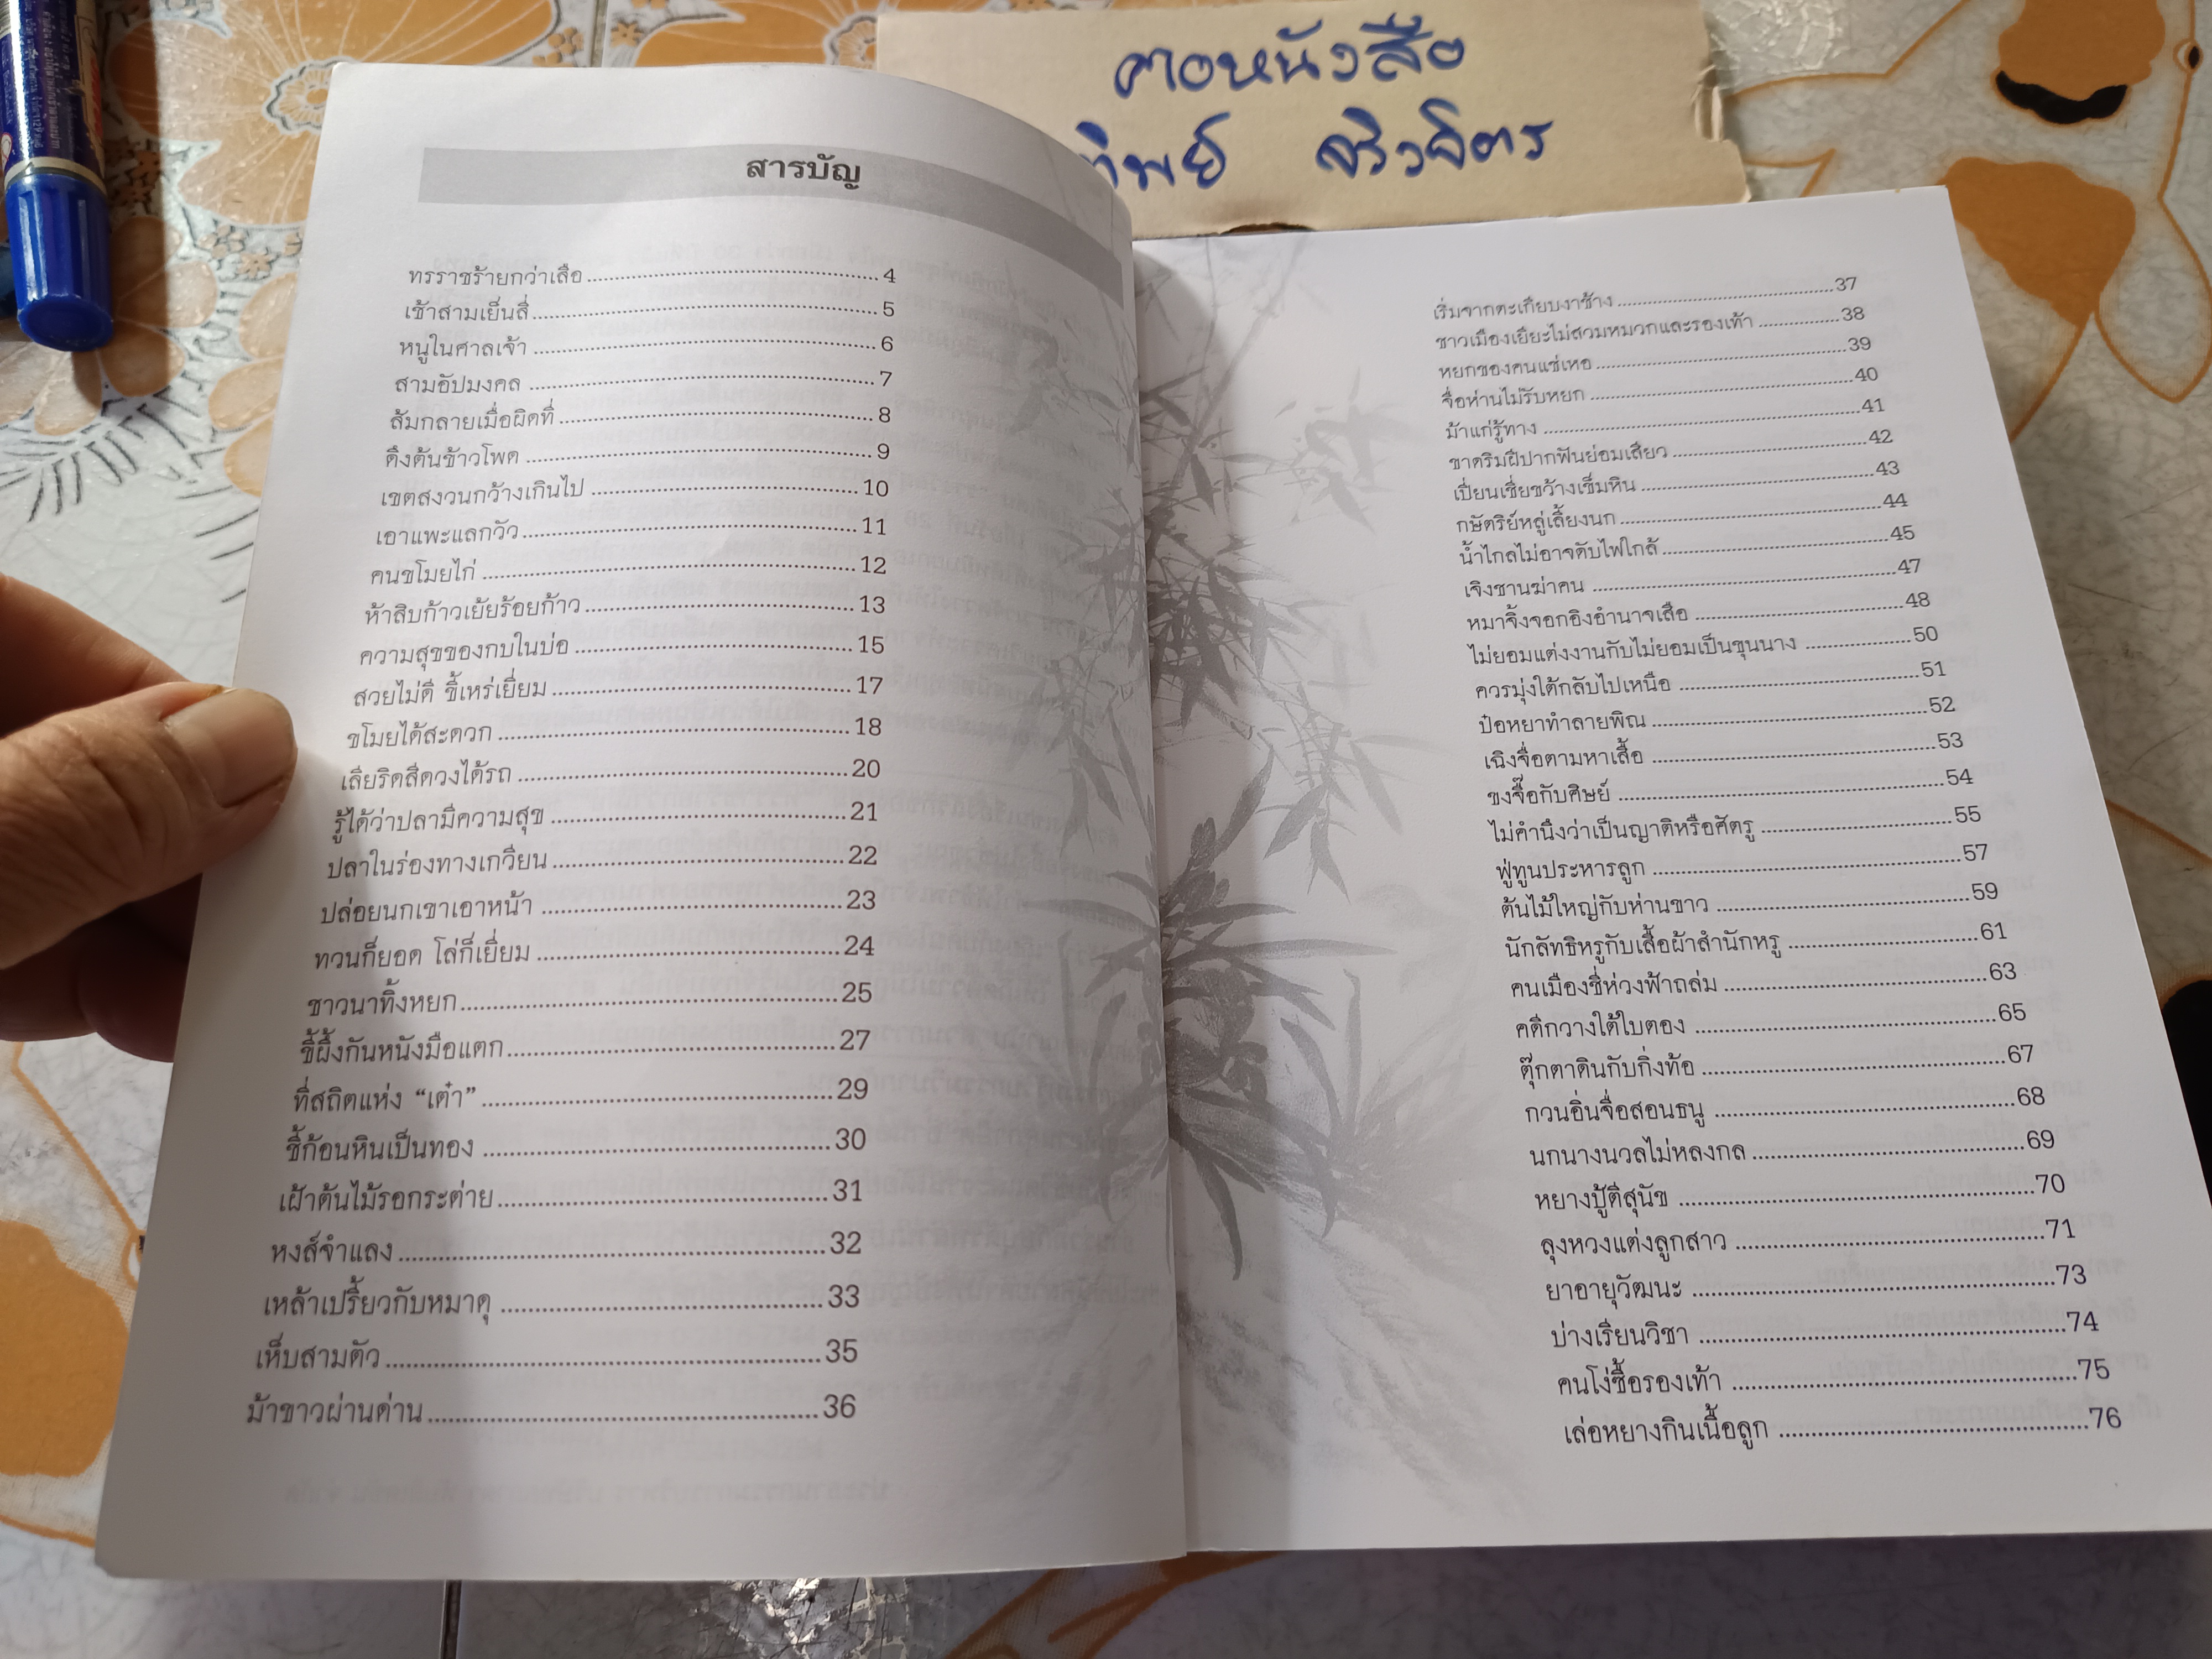 คอหนังสือ
ทิพย์ จริวจิตร
สารบัญ
ทรราชร้ายกว่าเสือ 4
เช้าสามเย็นสี่ 5
หนูในศาลเจ้า 6
สามอัปมงคล 7
ส้มกลายเมื่อผิดที่ 8
ดึงต้นข้าวโพด 9
เขตสงวนกว้างเกินไป 10
เอาแพะแลกวัว 11
คนขโมยไก่ 12
ห้าสิบก้าวเย้ยร้อยก้าว 13
ความสุขของกบในบ่อ 15
สวยไม่ดี ขี้เหร่เยี่ยม 17
ขโมยได้สะดวก 18
เลียริดสีดวงได้รถ 20
รู้ได้ว่าปลามีความสุข 21
ปลาในร่องทางเกวียน 22
ปล่อยนกเขาเอาหน้า 23
ทวนก็ยอด โล่ก็เยี่ยม 24
ชาวนาทิ้งหยก 25
ขี้ผึ้งกันหนังมือแตก 27
ที่สถิตแห่ง “เต๋า” 29
ชี้ก้อนหินเป็นทอง 30
เฝ้าต้นไม้รอกระต่าย 31
หงส์จำแลง 32
เหล้าเปรี้ยวกับหมาดุ 33
เห็บสามตัว 35
ม้าขาวผ่านด่าน 36
เริ่มจากตะเกียบงาช้าง 37
ชาวเมืองเยียะไม่สวมหมวกและรองเท้า 38
หยกของคนแซ่เหอ 39
จื่อห่านไม่รับหยก 40
ม้าแก่รู้ทาง 41
ขาดริมฝีปากฟันย่อมเสียว 42
เปี่ยนเชี่ยขว้างเข็มหิน 43
กษัตริย์หลู่เลี้ยงนก 44
น้ำไกลไม่อาจดับไฟใกล้ 45
เจิงซานฆ่าคน 47
หมาจิ้งจอกอิงอำนาจเสือ 48
ไม่ยอมแต่งงานกับไม่ยอมเป็นขุนนาง 50
ควรมุ่งใต้กลับไปเหนือ 51
ป๋อหยาทำลายพิณ 52
เฉิงจื่อตามหาเสื้อ 53
ขงจื๊อกับศิษย์ 54
ไม่คำนึงว่าเป็นญาติหรือศัตรู 55
ฟู่ทูนประหารลูก 57
ต้นไม้ใหญ่กับห่านขาว 59
นักลัทธิหรูกับเสื้อผ้าสำนักหรู 61
คนเมืองชี่ห่วงฟ้าถล่ม 63
คดีกวางใต้ใบตอง 65
ตุ๊กตาดินกับกิ่งท้อ 67
กวนอิ่นจื่อสอนธนู 68
นกนางนวลไม่หลงกล 69
หยางปู้ตีสุนัข 70
ลุงหวงแต่งลูกสาว 71
ยาอายุวัฒนะ 73
บ่างเรียนวิชา 74
คนโง่ซื้อรองเท้า 75
เล่อหยางกินเนื้อลูก 76